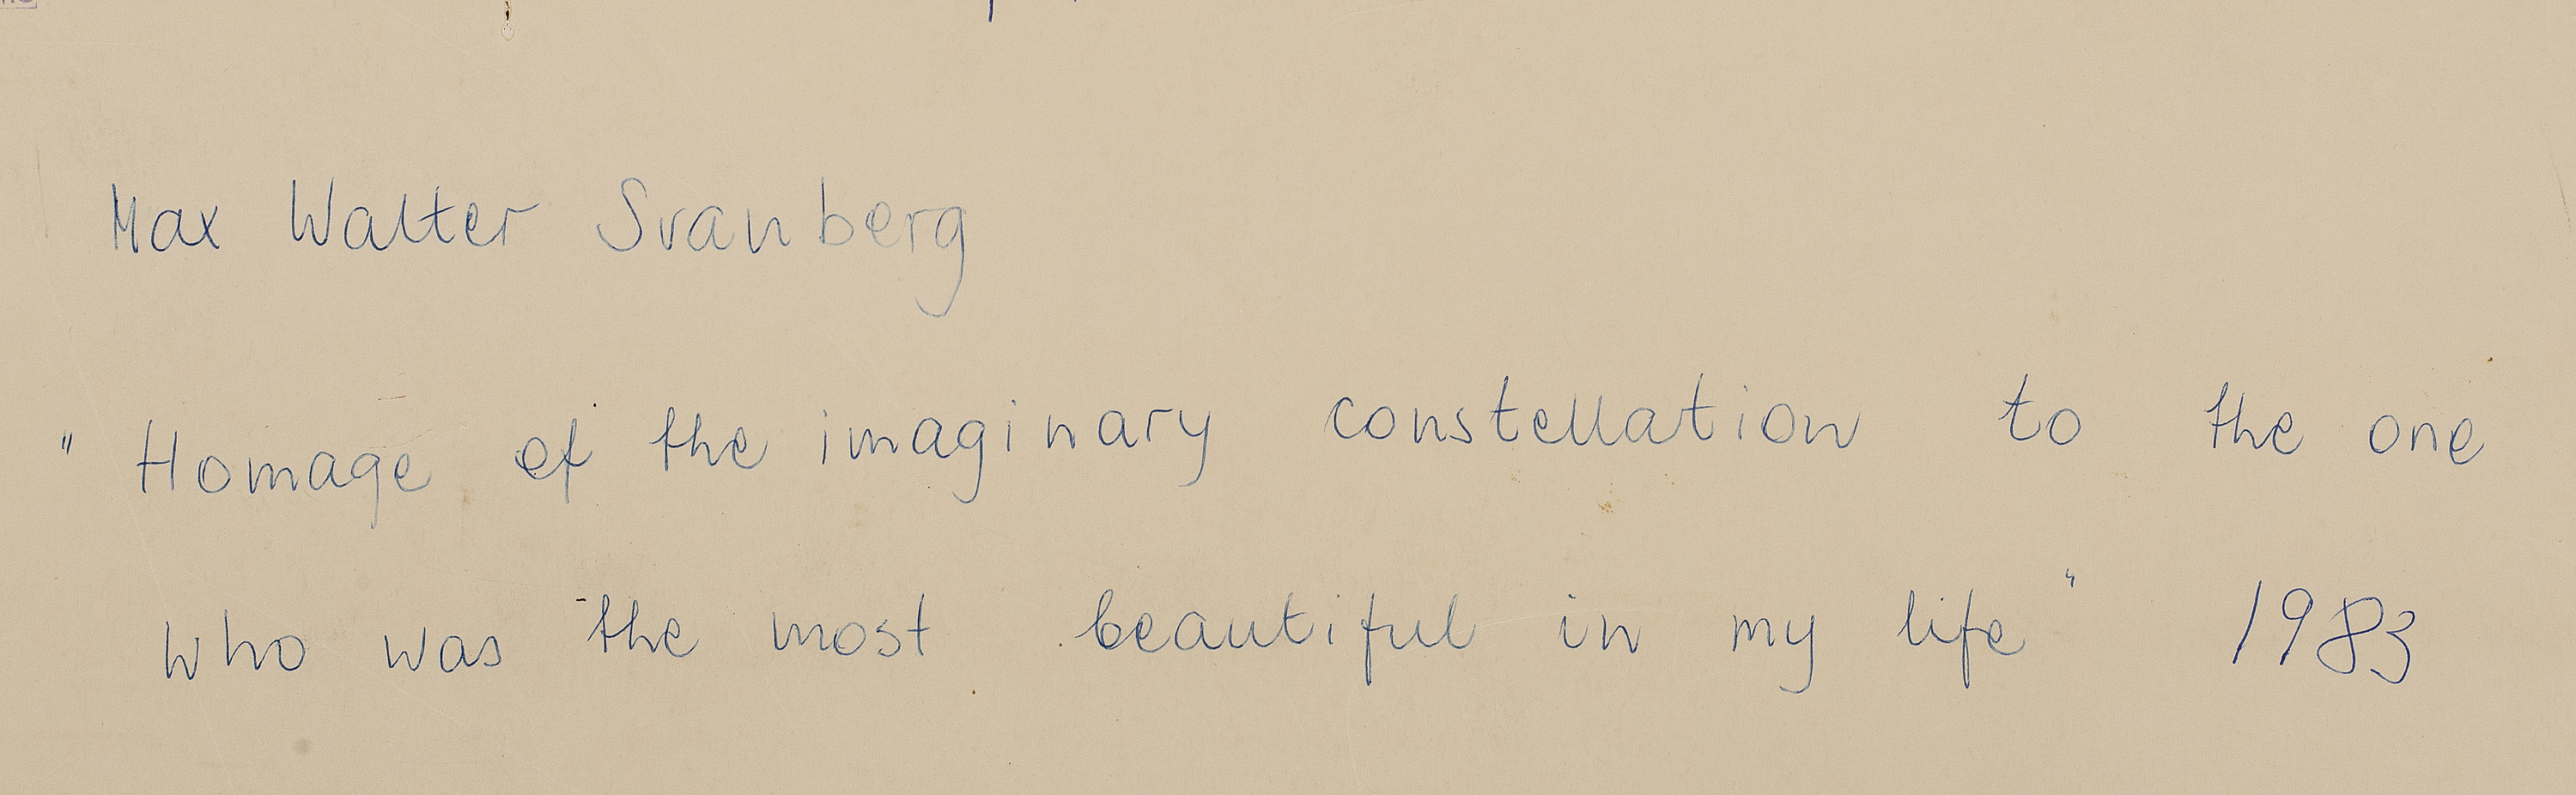 Max Walter Svanberg
" Homage of the imaginary constellation to the one
who was the most beautiful in my life" 1983